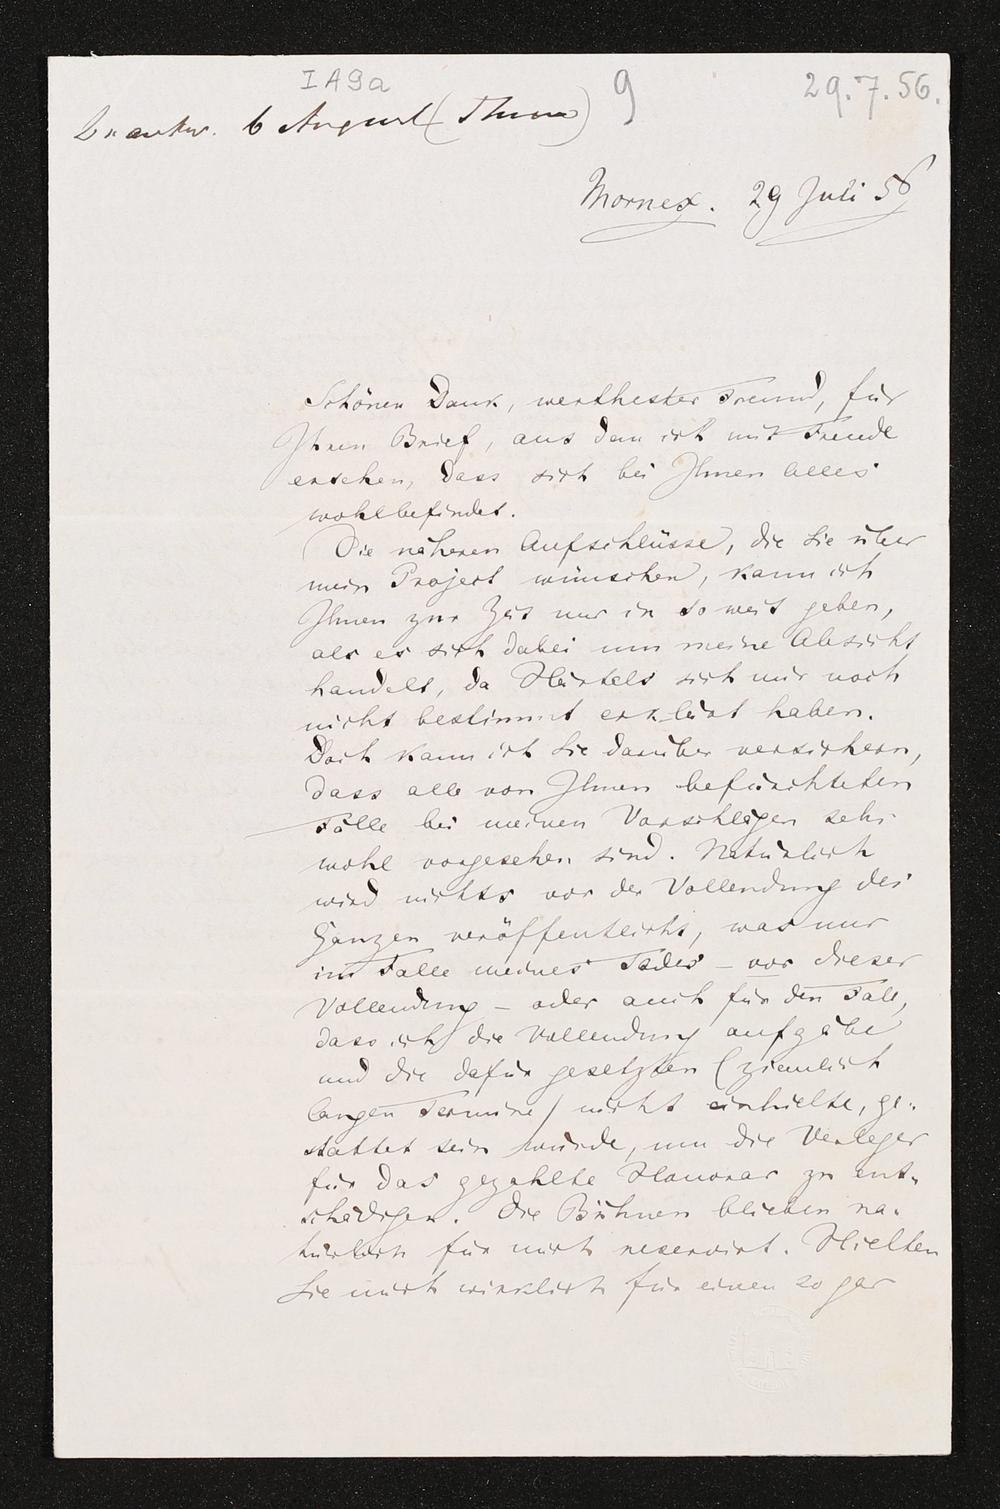 I A 9 a
9
29.7.56.
Beantw. 6 August (Thun)
Mornex. 29 Juli 56
Schönen Dank, werthester Freund, für
Ihren Brief, aus dem ich mit Freude
ersehen, dass sich bei Ihnen alles
wohlbefindet.
Die näheren Aufschlüsse, die Sie über
mein Project wünschen, kann ich
Ihnen zur Zeit nur in so weit geben,
als es sich dabei um meine Absicht
handelt, da Härtels sich mir noch
nicht bestimmt erklärt haben.
Doch kann ich Sie darüber versichern,
dass alle von Ihnen befürchteten
Fälle bei meinen Vorschlägen sehr
wohl vorgesehen sind. Natürlich
wird nichts vor der Vollendung des
Ganzen veröffentlicht, was nur
im Falle meines Todes – vor dieser
Vollendung – oder auch für den Fall,
dass ich die Vollendung aufgäbe
und die dafür gesetzten (ziemlich
langen Termine) nicht einhielte, ge-
stattet sein würde, um die Verleger
für das gezahlte Honorar zu ent-
schädigen. Die Bühnen blieben na-
türlich für mich reservirt. Hielten
Sie mich wirklich für einen so gar